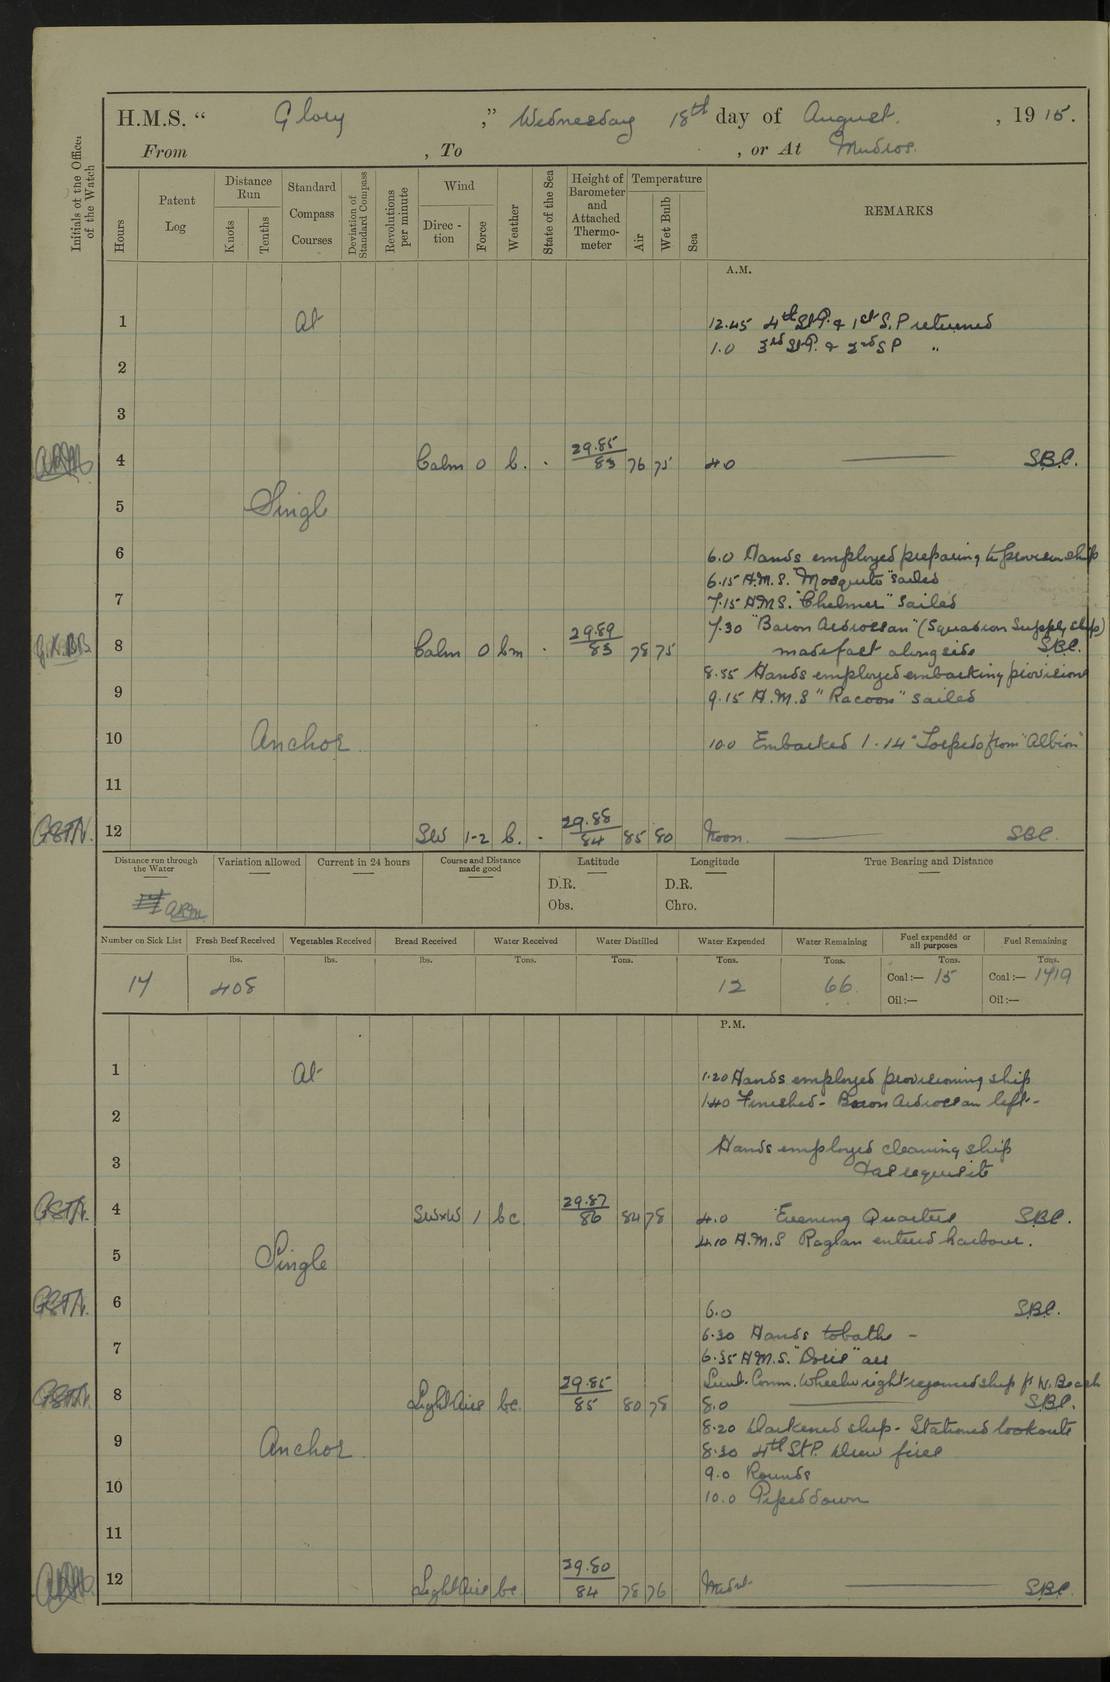 H.M.S. “ Glory ,” Wednesday 18th day of August. , 1915.
From , To , or At Mudros.
Initials of the Officer of the Watch
Hours
Patent Log
Distance Run
Knots
Tenths
Standard Compass Courses
Deviation of Standard Compass
Revolutions per minute
Wind
Direc-tion
Force
Weather
State of the Sea
Height of Barometer and Attached Thermo-meter
Temperature
Air
Wet Bulb
Sea
REMARKS
A.M.
1 At 12.45 4th St P. & 1st S.P returned
1.0 3rd St P. & 2nd S P "
2
3
4 Calm 0 b. . 29.85/83 76 75 4.0 ——— S.B.C.
5 Single
6 6.0 Hands employed preparing to provision ship
6.15 H.M.S. "Mosquito" sailed
7 7.15 HMS. "Chelmer" sailed
7.30 "Baron Ardrossan" (Squadron Supply ship)
8 Calm 0 bm . 29.89/83 78 75 made fast alongside S.B.C.
8.55 Hands employed embarking provisions
9 9.15 H.M.S "Racoon" sailed
10 Anchor 10.0 Embarked 1.14" Torpedo from "Albion"
11
GSTN. 12 SW 1-2 b. - 29.88/84 85 80 Noon. ——— SBC.
Distance run through the Water
Variation allowed
Current in 24 hours
Course and Distance made good
Latitude
D.R.
Obs.
Longitude
D.R.
Chro.
True Bearing and Distance
Number on Sick List
Fresh Beef Received
Vegetables Received
Bread Received
Water Received
Water Distilled
Water Expended
Water Remaining
Fuel expended or all purposes
Fuel Remaining
lbs. lbs. lbs. Tons. Tons. Tons. Tons. Tons. Tons.
14 408 12 66 Coal:— 15 Coal:— 1719
Oil:— Oil:—
P.M.
1 At 1.20 Hands employed provisioning ship
1.40 Finished - Baron Ardrossan left -
2
Hands employed cleaning ship
3 & as requisite
GSTN. 4 SWxW 1 bc 29.87/86 84 78 4.0 Evening Quarters SBC.
4.10 H.M.S Raglan entered harbour.
5 Single
GSTN. 6 6.0 S.B.C.
6.30 Hands to bathe -
7 6.35 H.M.S. "Doris" arr
Lieut. Comm. Wheelwright rejoined ship fr N. Beach
GSTN. 8 Light Airs bc. 29.85/85 80 78 8.0 ——— S.B.C.
8.20 Darkened ship - Stationed lookouts
9 Anchor 8.30 4th St P. Drew fires
9.0 Rounds
10 10.0 Piped down
11
12 Light Airs bc. 29.80/84 78 76 Midnt. ——— S.B.C.